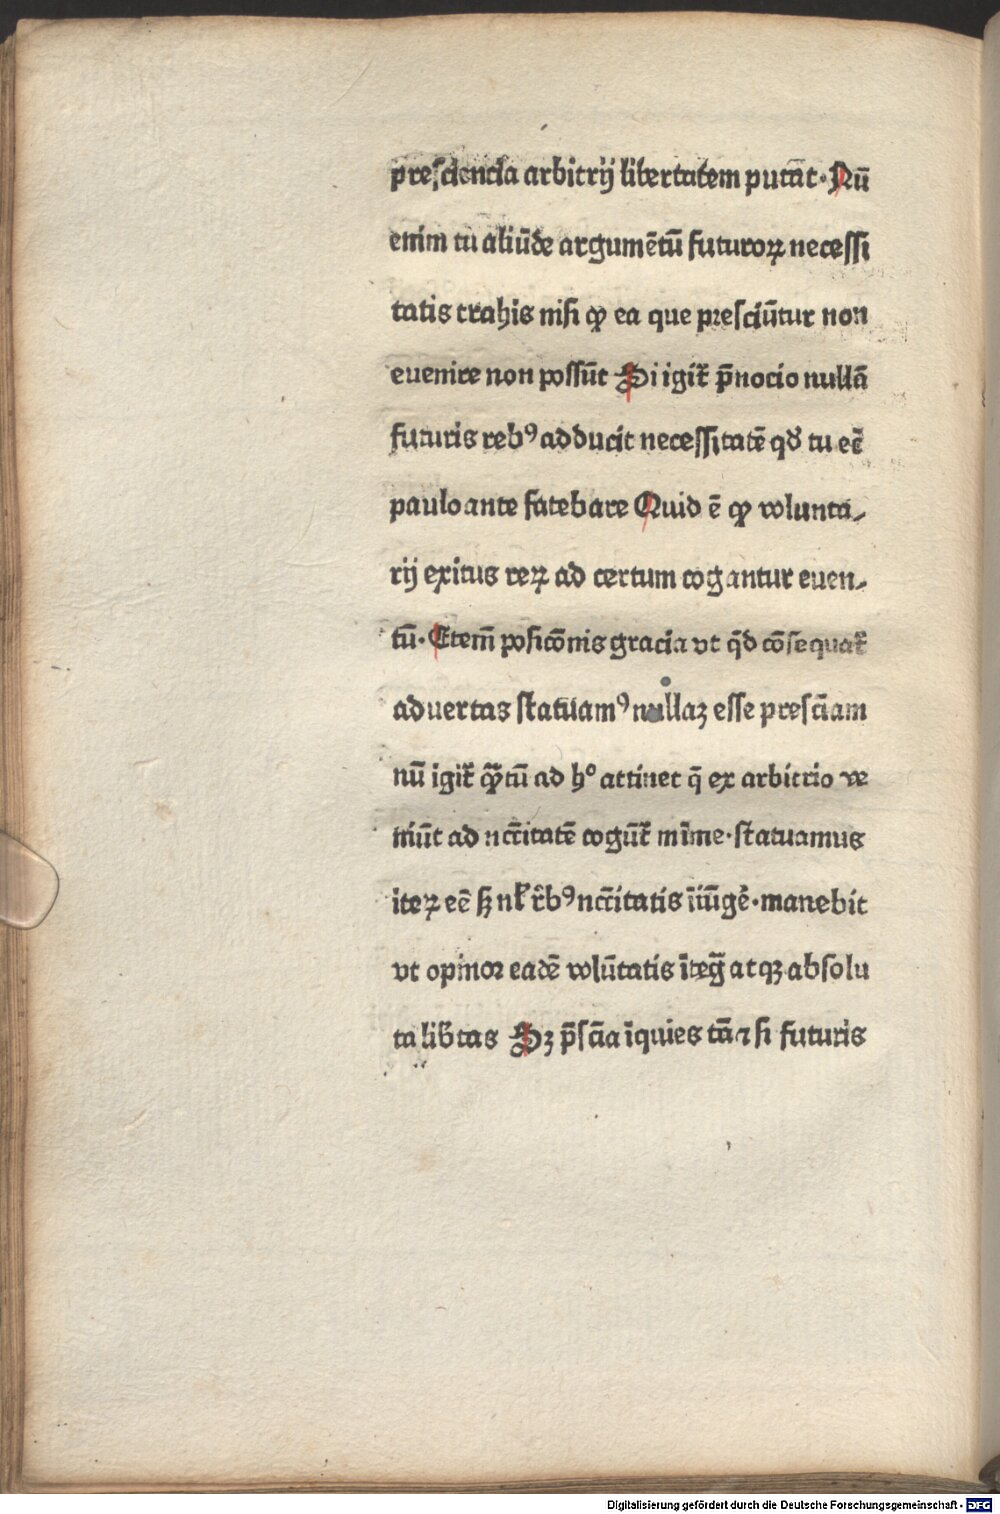 presciencia arbitrij libertatem putāt · Nū
enim tu aliūde argumētū futuroꝝ necessi
tatis trahis nisi ꝙ ea que presciūtur non
euenire non possūt Si igit̄ p̄nocio nullā
futuris rebꝰ adducit necessitatē qḋ tu ec̄
paulo ante fatebare Quid ē ꝙ volunta⸗
rij exitus reꝝ ad certum cogantur euen⸗
tū · Etem̄ posicōnis gracia vt q̄d cōsequat̄
aduertas statuamꝰ nullaꝫ esse presc̄iam
nū igit̄ q̄ꝫtū ad hͦ attinet q̄ ex arbitrio ve
niūt ad nc̄c̄itatē cogūt̄ mīme · statuamus
iteꝝ eē sꝫ nl̄ r̄bꝰ nc̄c̄itatis īiūgē · manebit
vt opinor eadē volūtatis īteḡ atqꝫ absolu
ta lib̄tas Sꝫ p̄sc̄ia īquies tā⁊ si futuris
Digitalisierung gefördert durch die Deutsche Forschungsgemeinschaft - DFG